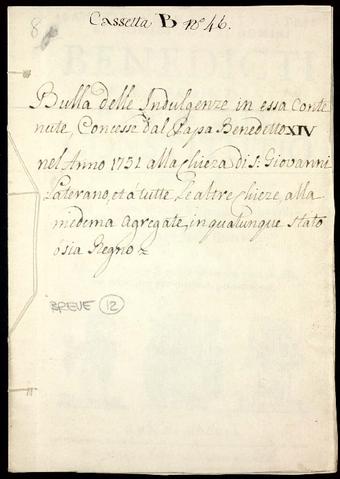 8
Cassetta B nº 46.
Bulla delle Indulgenze in essa Conte
nute, Concesse dal Papa Benedetto XIV
nel Anno 1751 alla chieza di S: Giovanni
Laterano, et à tutte Le altre chieze, alla
medema agregate, in qualunque stato
ò sia Regno
BREVE 12